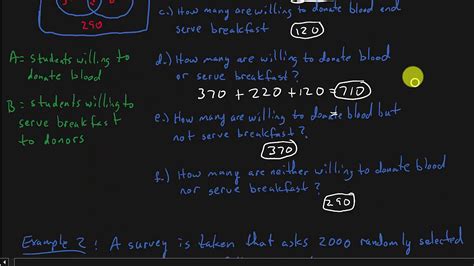 c.) How many are willing to donate blood and
serve breakfast?
120
290
A = students willing to
donate blood
B = students willing to
serve breakfast
to donors
d.) How many are willing to donate blood
or serve breakfast?
370 + 220 + 120 = 710
e.) How many are willing to donate blood but
not serve breakfast?
370
f.) How many are neither willing to donate blood
nor serve breakfast?
290
Example 2: A survey is taken that asks 2000 randomly selected